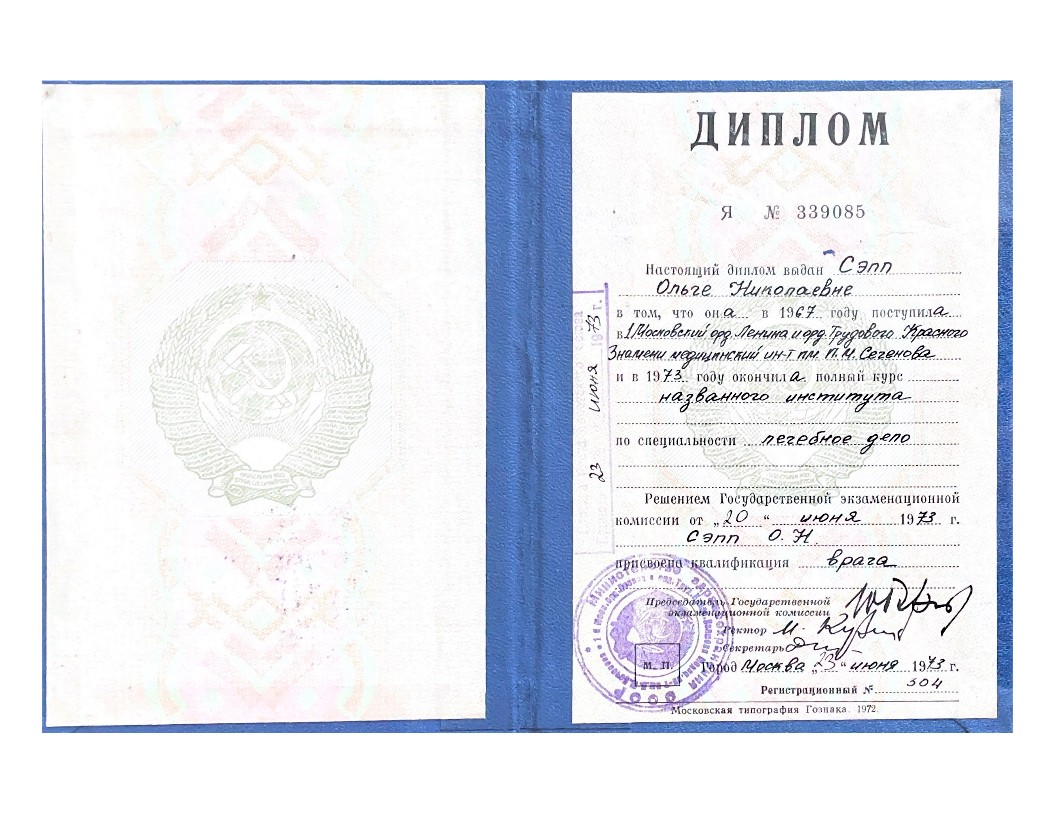 ДИПЛОМ
Я № 339085
Настоящий диплом выдан Сэпп
Ольге Николаевне
в том, что она в 1967 году поступила
в I Московский орд. Ленина и орд. Трудового Красного
Знамени медицинский ин-т им. И. М. Сеченова
и в 1973 году окончила полный курс
названного института
по специальности лечебное дело
Решением Государственной экзаменационной
комиссии от „20“ июня 1973 г.
Сэпп О. Н.
присвоена квалификация врача
Председатель Государственной
экзаменационной комиссии
Ректор
Секретарь
М. П.
Город Москва „23“ июня 1973 г.
Регистрационный № 504
Московская типография Гознака. 1972.
23 июня 1973 г.
МИНИСТЕРСТВО ЗДРАВООХРАНЕНИЯ СССР